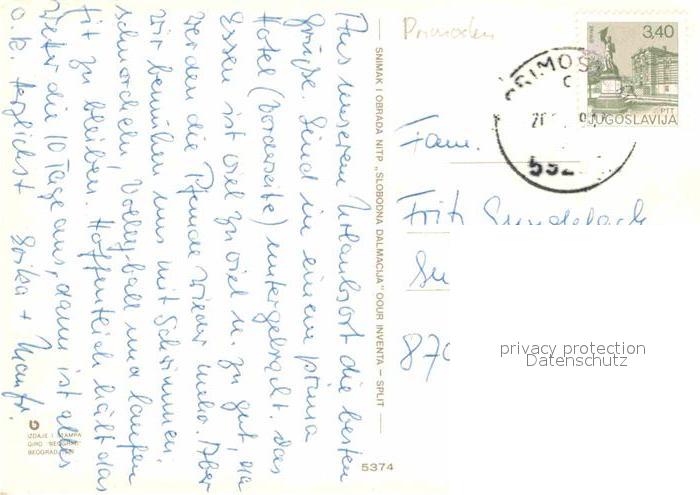 Aus unserem Urlaubsort die besten
Grüße. Sind in einem prima
Hotel (Vorderseite) untergebracht. das
Essen ist viel zu viel u. zu gut, da
werden die Pfunde wieder mehr. Aber
wir bemühen uns mit Schwimmen,
schnorcheln, Volleyball und laufen
fit zu bleiben. Hoffentlich hält das
Wetter die 10 Tage aus, dann ist alles
o.k. Herzlichst
SNIMAK I OBRADA NITP „SLOBODNA DALMACIJA" OOUR INVENTA – SPLIT
IZDAJE I ŠTAMPA
GIRO "BEOGRAD"
BEOGRAD
5374
Primosten
3,40
PTT
JUGOSLAVIJA
PRIMOŠ
Fam.
Fritz
870
privacy protection
Datenschutz